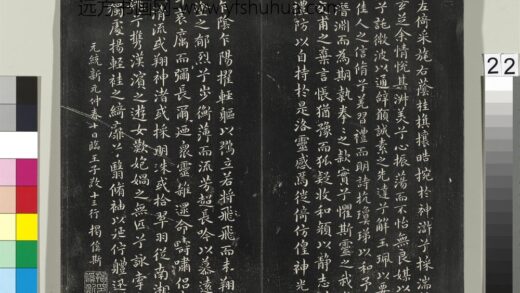 远方书画网-www.yfshuhua.com
左倚采旄右蔭桂旗攘皓捥於神滸兮採湍
玄芝余情悅其淑美兮心振蕩而不怡無良媒以
兮託微波以通辭願誠素之先達兮解玉珮以要
佳人之信脩兮羌習禮而明詩抗瓊珶以和予
潛淵而為期執拳之款實兮懼斯靈之我
甫之棄言悵猶豫而狐疑收和顏以静志
防以自持於是洛靈感焉徙倚彷徨神光
陰乍陽擢輕軀以鶴立若將飛飛而未翔
之郁烈兮步衡薄而流芳超長吟以慕遠
哀厲而彌長爾迺衆靈雜遝命疇嘯侣
清流或翔神渚或採明珠或拾翠羽從南湘
妃攜漢濱之遊女歎匏媧之無匹兮詠牽
獨處揚輕袿之綺靡以翳脩袖以延佇體迅
元統新元仲春十日臨王子敬十三行 揭傒斯
22
2